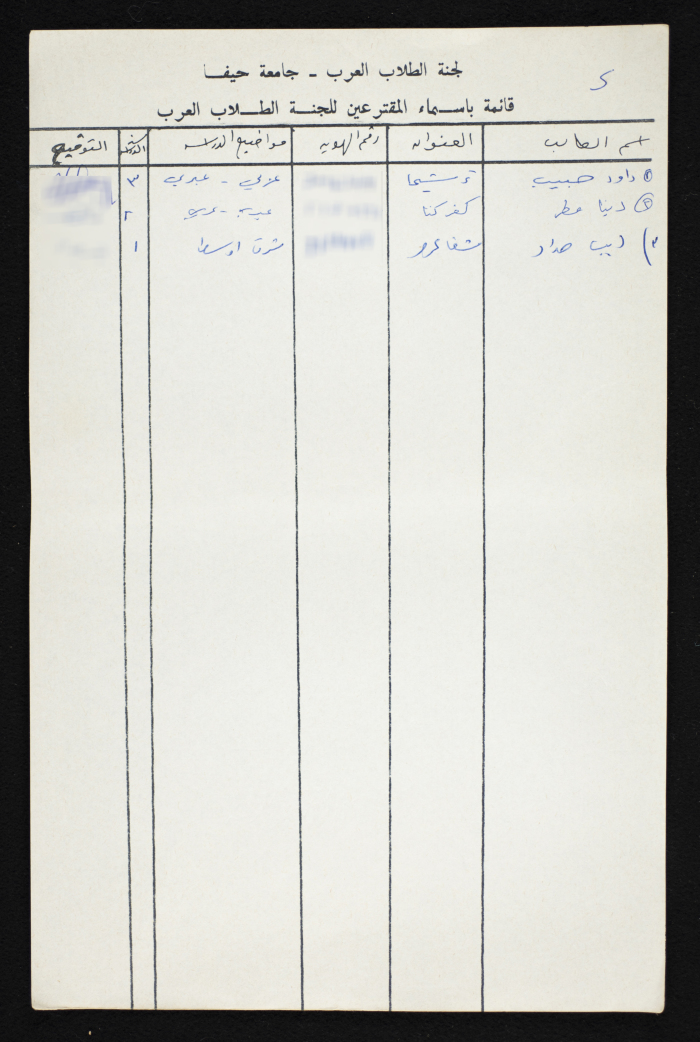 لجنة الطلاب العرب - جامعة حيفا
قائمة باسماء المقترعين للجنة الطلاب العرب
اسم الطالب العنوان رقم الهويه مواضيع الدراسه سنة الدراسة التوقيع
① داود حبيب ترشيحا عربي - عبري ٣
② دنيا مطر كفركنا عبري - عربي ٢
٣) اديب حداد شفاعمرو شرق اوسط ١